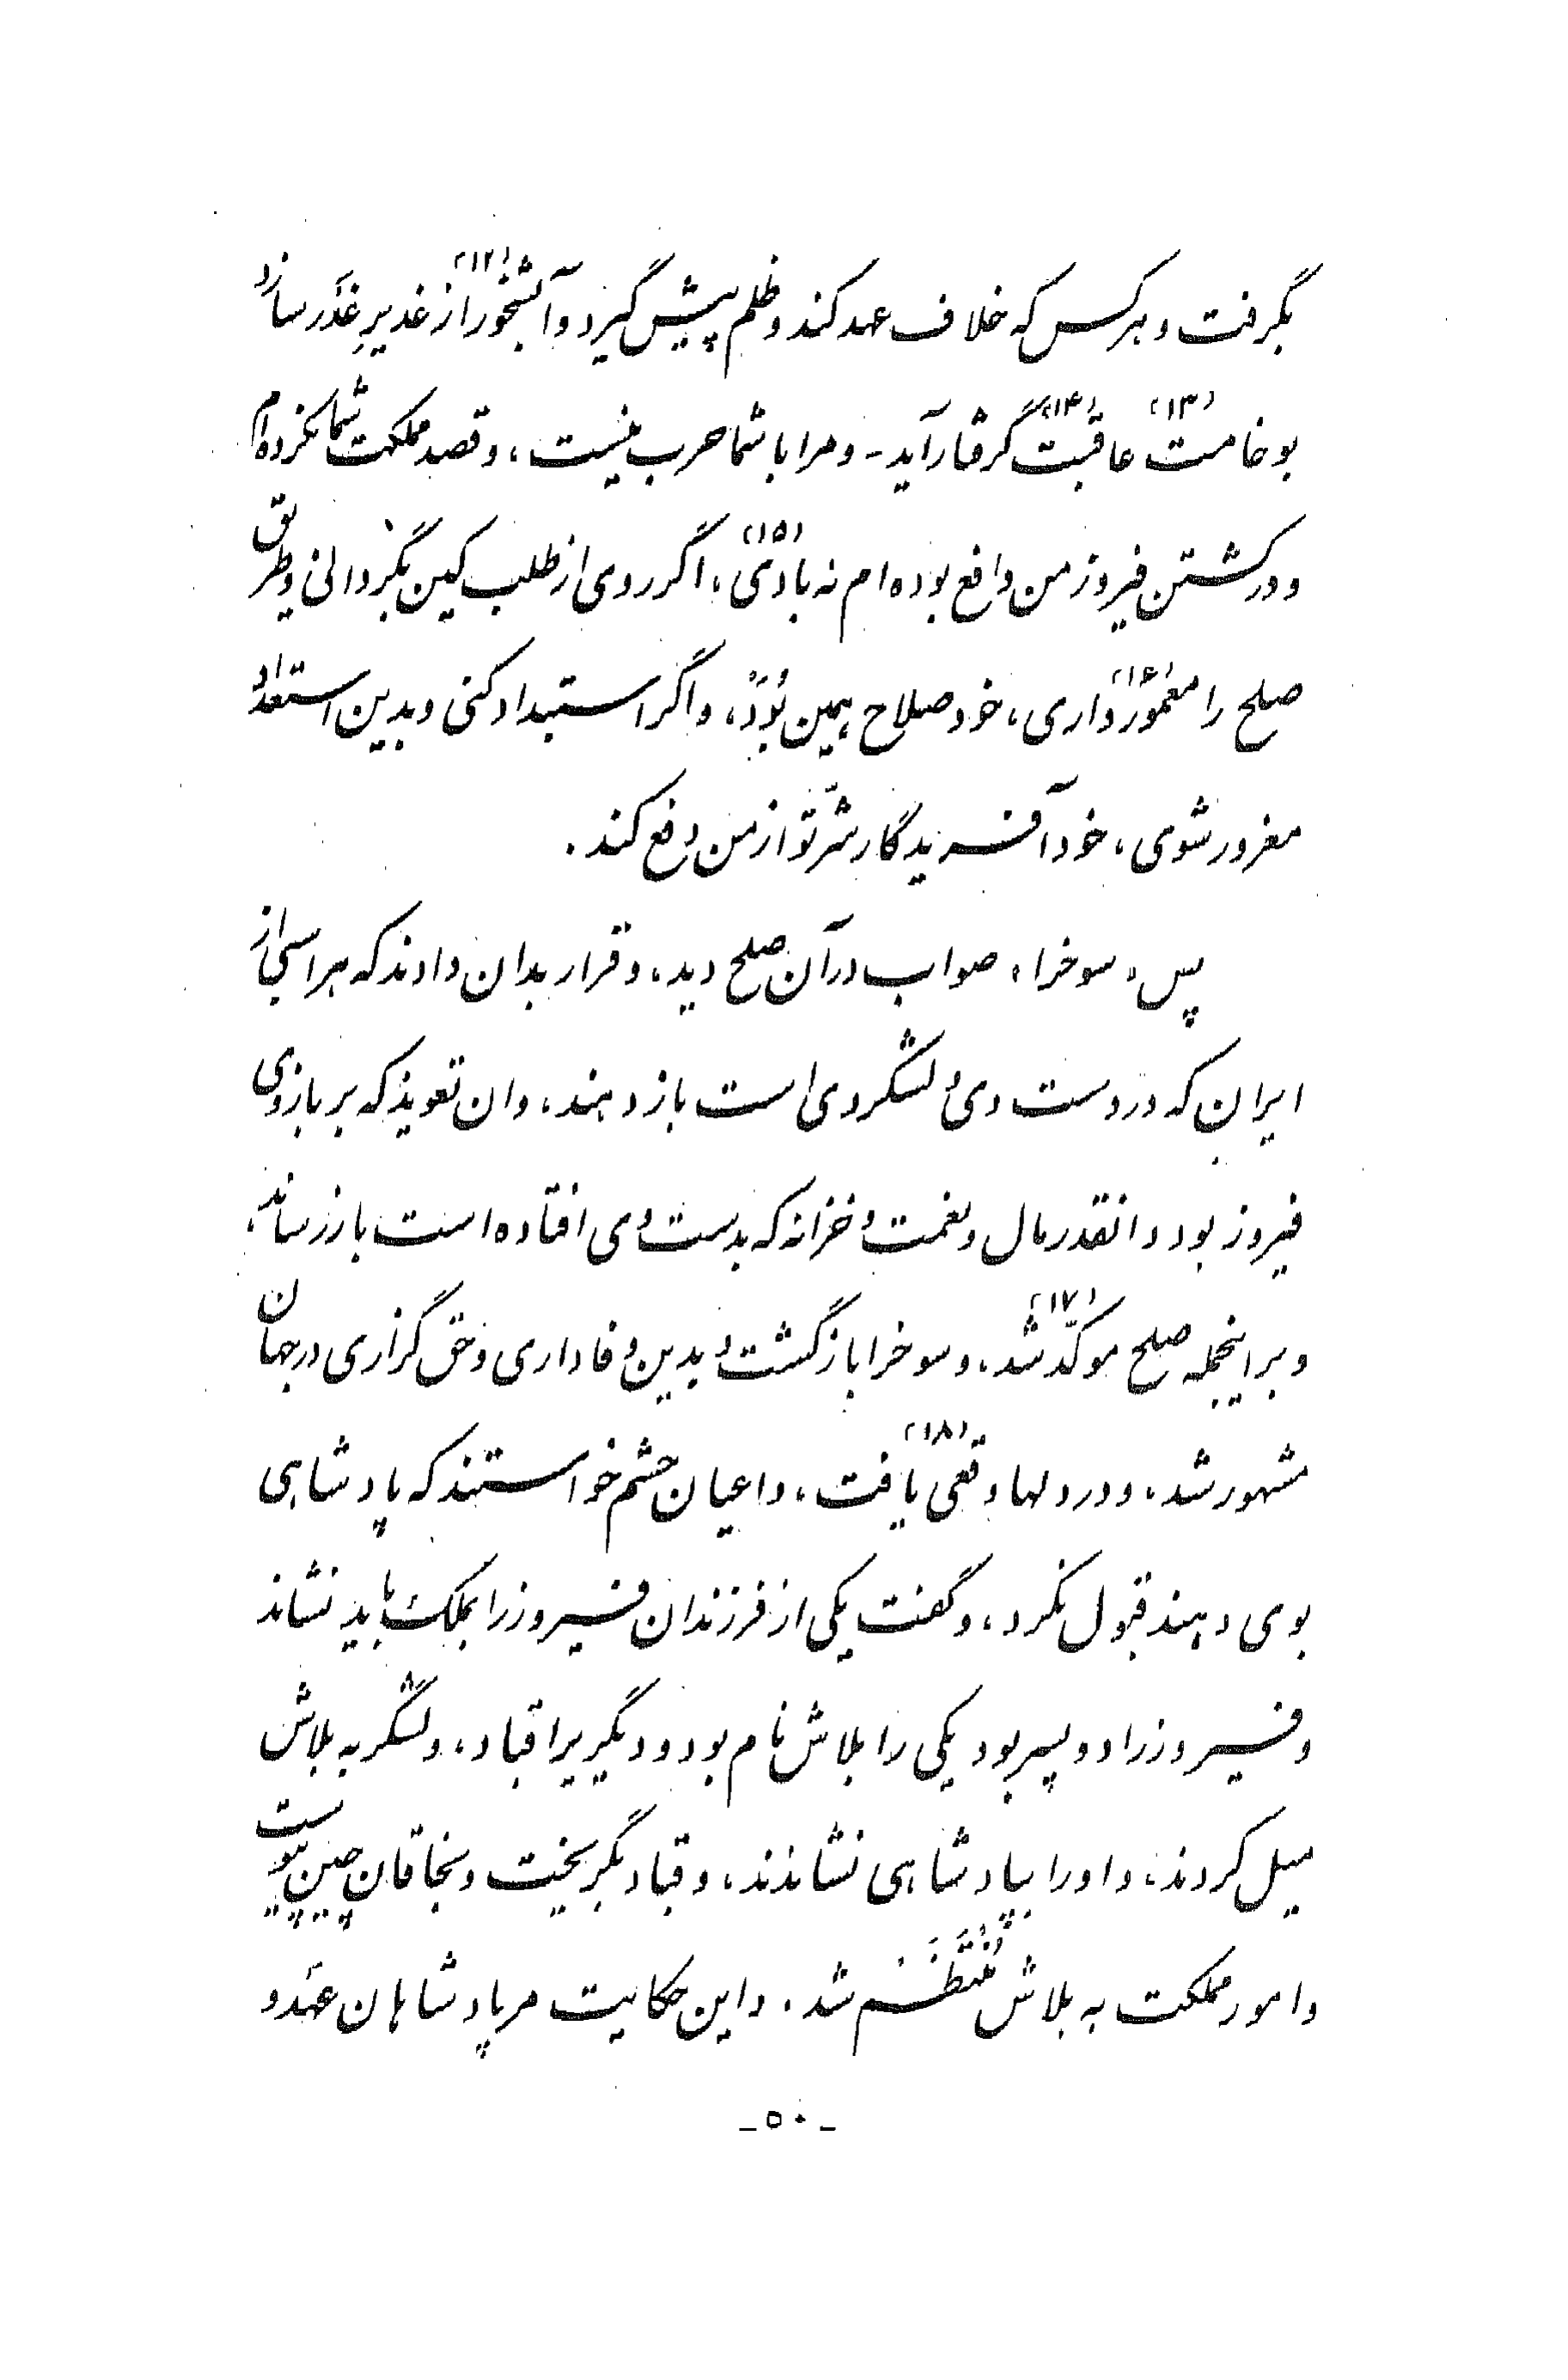 بگرفت و هرکس که خلاف عهد کند و ظلم پیش گیرد و آبشخور (۱۲) از غدیرِ غَدر سازد
بوخامت (۱۳) عاقبت (۱۴) گرفتار آید - و مرا با شما حرب نیست، و قصد مملکت شما نکرده‌ام
و در کشتن فیروز من دافع بوده‌ام نه بادی (۱۵)، اگر روی از طلب کین بگردانی و طریق
صلح را معمور (۱۶) داری، خود صلاح همین بُوَد، و اگر استبداد کنی و بدین استعداد
مغرور شوی، خود آفریدگار شرّ تو از من دفع کند.
پس، سوخرا، صواب در آن صلح دید، و قرار بدان دادند که هر اسیحی از
ایران که در دست وی و لشکر وی است باز دهند، و ان تعویذ که بر بازوی
فیروز بود و انقدر مال و نعمت و خزانه که بدست وی افتاده است باز رساند،
و بر اینجمله صلح موکّد (۱۷) شد، و سوخرا بازگشت و بدین وفاداری و حق گزاری در جهان
مشهور شد، و در دلها وقعی (۱۸) یافت، و اعیان حشم خواستند که پادشاهی
بوی دهند قبول نکرد، و گفت یکی از فرزندان فیروز را بملک باید نشاند
و فیروز را دو پسر بود یکی را بلاش نام بود و دیگریرا قباد، و لشگر به بلاش
میل کردند، و او را بپادشاهی نشاندند، و قباد بگریخت و بخاقان چین پیوست
و امور مملکت به بلاش مُنتَظَم شد. و این حکایت مر پادشاهان عَهد و
- ۵۰ -